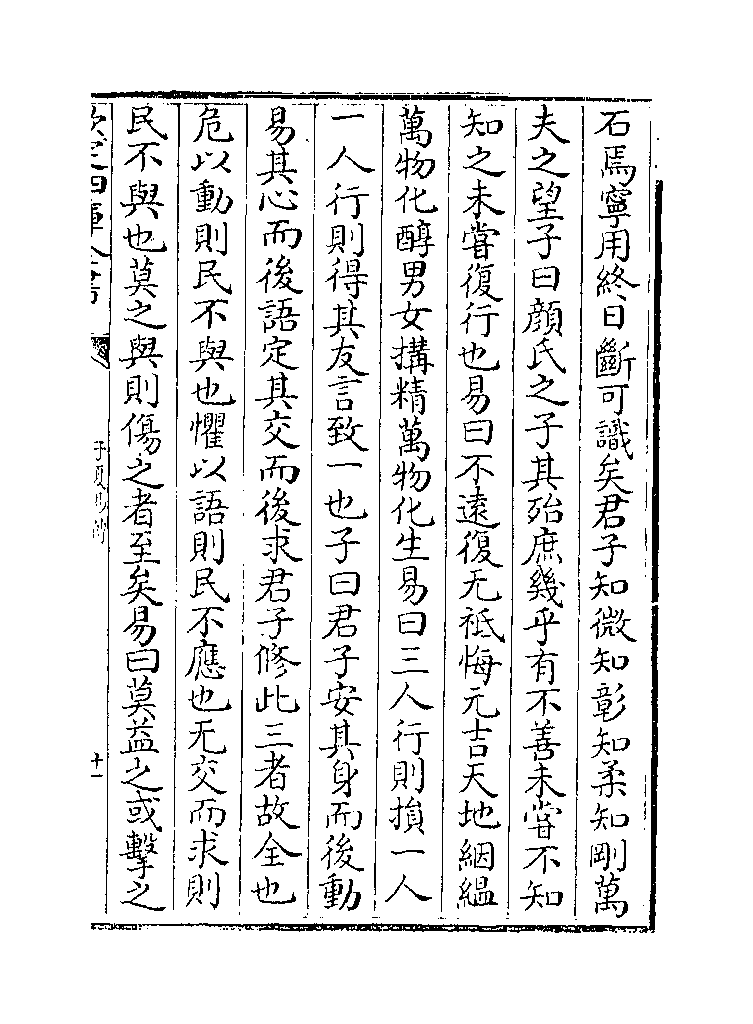 石焉寧用終日斷可識矣君子知微知彰知柔知剛萬
夫之望子曰顔氏之子其殆庶幾乎有不善未嘗不知
知之未嘗復行也易曰不遠復无祗悔元吉天地絪緼
萬物化醇男女搆精萬物化生易曰三人行則損一人
一人行則得其友言致一也子曰君子安其身而後動
易其心而後語定其交而後求君子修此三者故全也
危以動則民不與也懼以語則民不應也无交而求則
民不與也莫之與則傷之者至矣易曰莫益之或擊之
欽定四庫全書
子夏易傳
十一